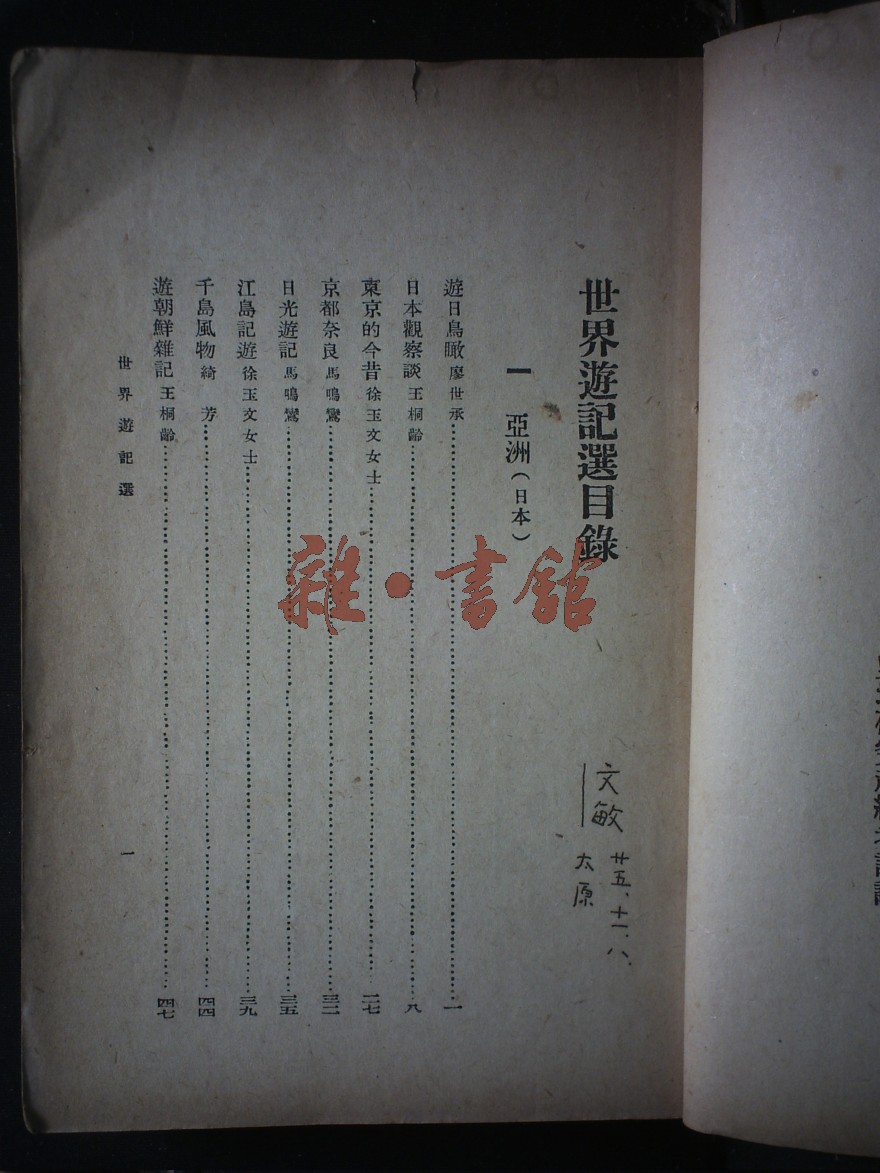 世界遊記選目錄
一 亞洲(日本)
遊日鳥瞰 廖世承……一
日本觀察談 王桐齡……八
東京的今昔 徐玉文女士……二七
京都奈良 馬鳴鸞……三二
日光遊記 馬鳴鸞……三五
江島記遊 徐玉文女士……三九
千島風物 綺芳……四四
遊朝鮮雜記 王桐齡……四七
世界遊記選
一
文敏 廿五、十一、八、
太原
雜·書館